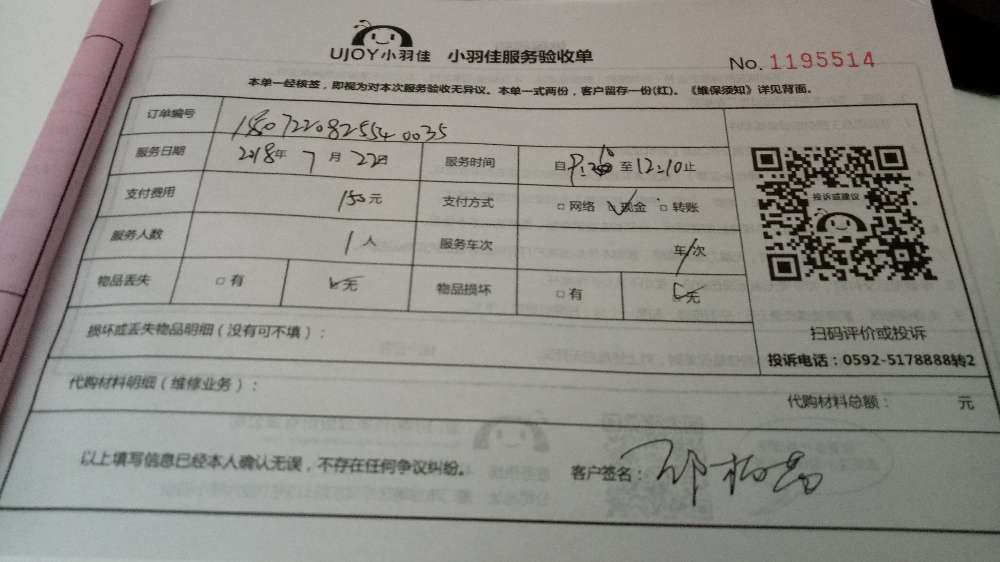 UJOY小羽佳 小羽佳服务验收单
No. 1195514
本单一经核签，即视为对本次服务验收无异议。本单一式两份，客户留存一份(红)。《维保须知》详见背面。
订单编号 180722082554 0035
服务日期 2018年 7月 22日 服务时间 自 至12:10止
支付费用 150元 支付方式 □网络 □现金 □转账
服务人数 1人 服务车次 车/次
物品丢失 □有 □无 物品损坏 □有 □无
损坏或丢失物品明细（没有可不填）：
投诉或建议
扫码评价或投诉
投诉电话：0592-5178888转2
代购材料明细（维修业务）： 代购材料总额： 元
以上填写信息已经本人确认无误，不存在任何争议纠纷。 客户签名：